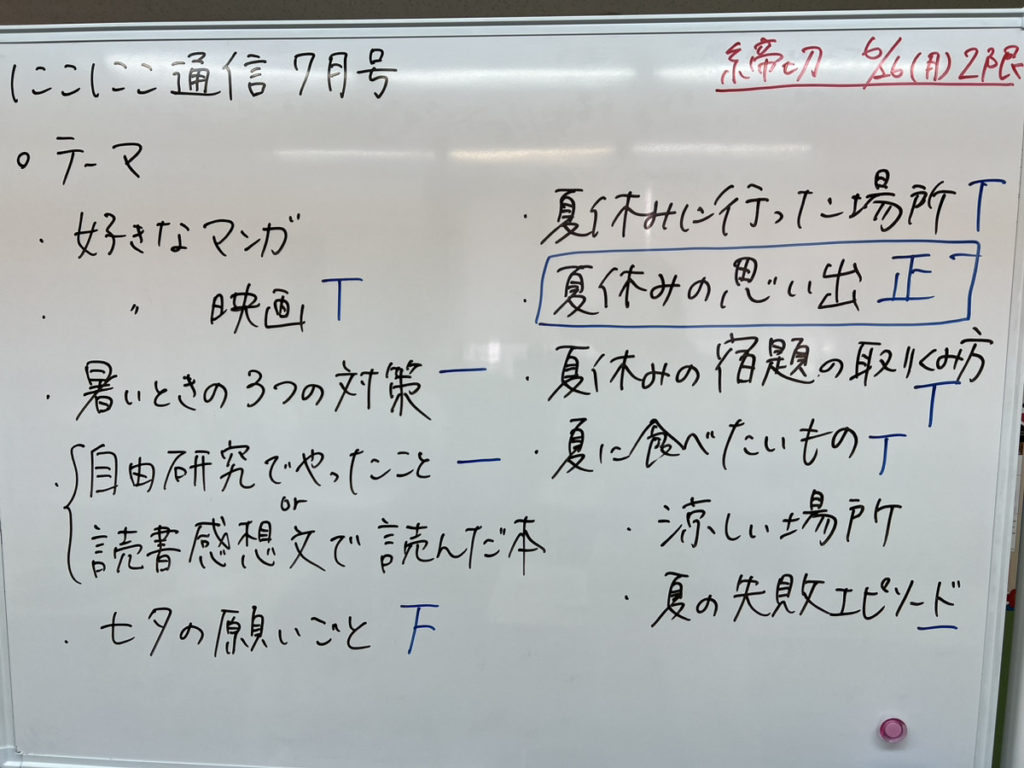 にこにこ通信 7月号
締切 6/26(月)2限
○ テーマ
・好きなマンガ
・〃 映画 T
・暑いときの3つの対策 一
・自由研究でやったこと 一
or
読書感想文で読んだ本
・七夕の願いごと 下
・夏休みに行った場所 T
・夏休みの思い出 正一
・夏休みの宿題の取りくみ方
T
・夏に食べたいもの T
・涼しい場所
・夏の失敗エピソード
一